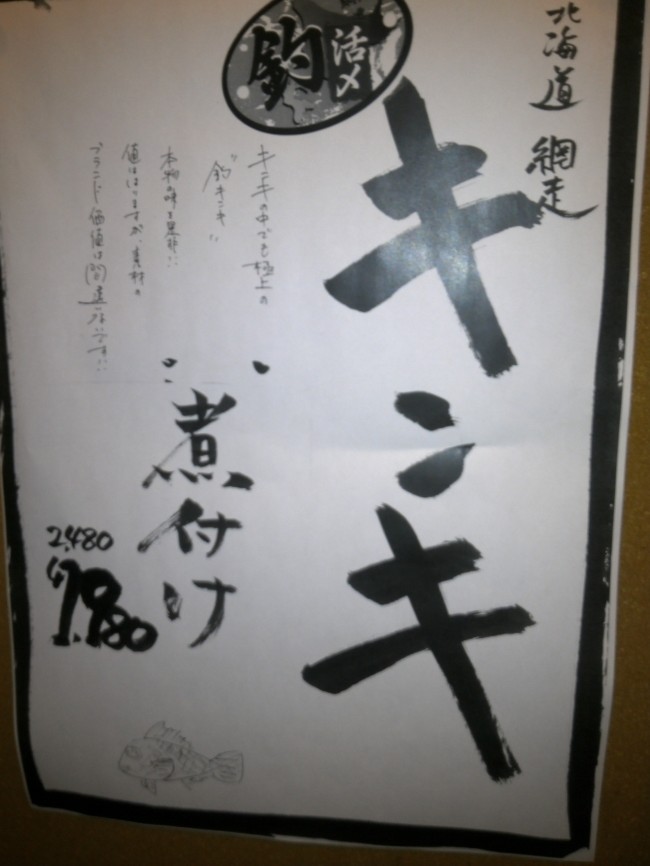 北海道 網走
キンキ
活〆
釣
キンキの中でも極上の
"釣キンキ"
本物の味を是非!!
値ははりますが、素材の
ブランド価値は間違いないです!!
煮付け
2,480
1,980